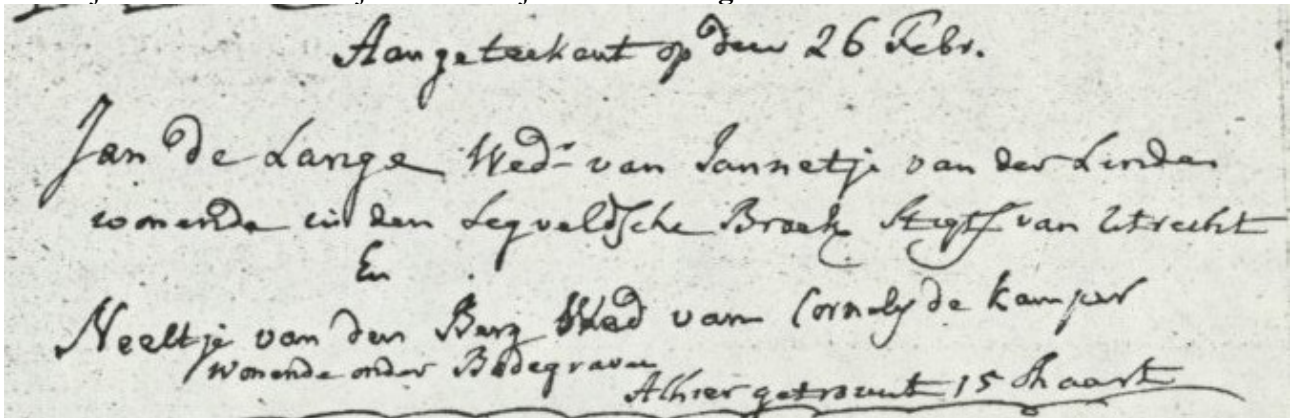 Aangeteekent op den 26 Febr.
Jan de Lange Wedr van Jannetje van der Linden
wonende in den Legveldsche Broek Stigts van Utrecht
En
Neeltje van den Berg Wed van Cornelis de Kamper
wonende onder Bodegraven
Alhier getrouwt 15 Maart